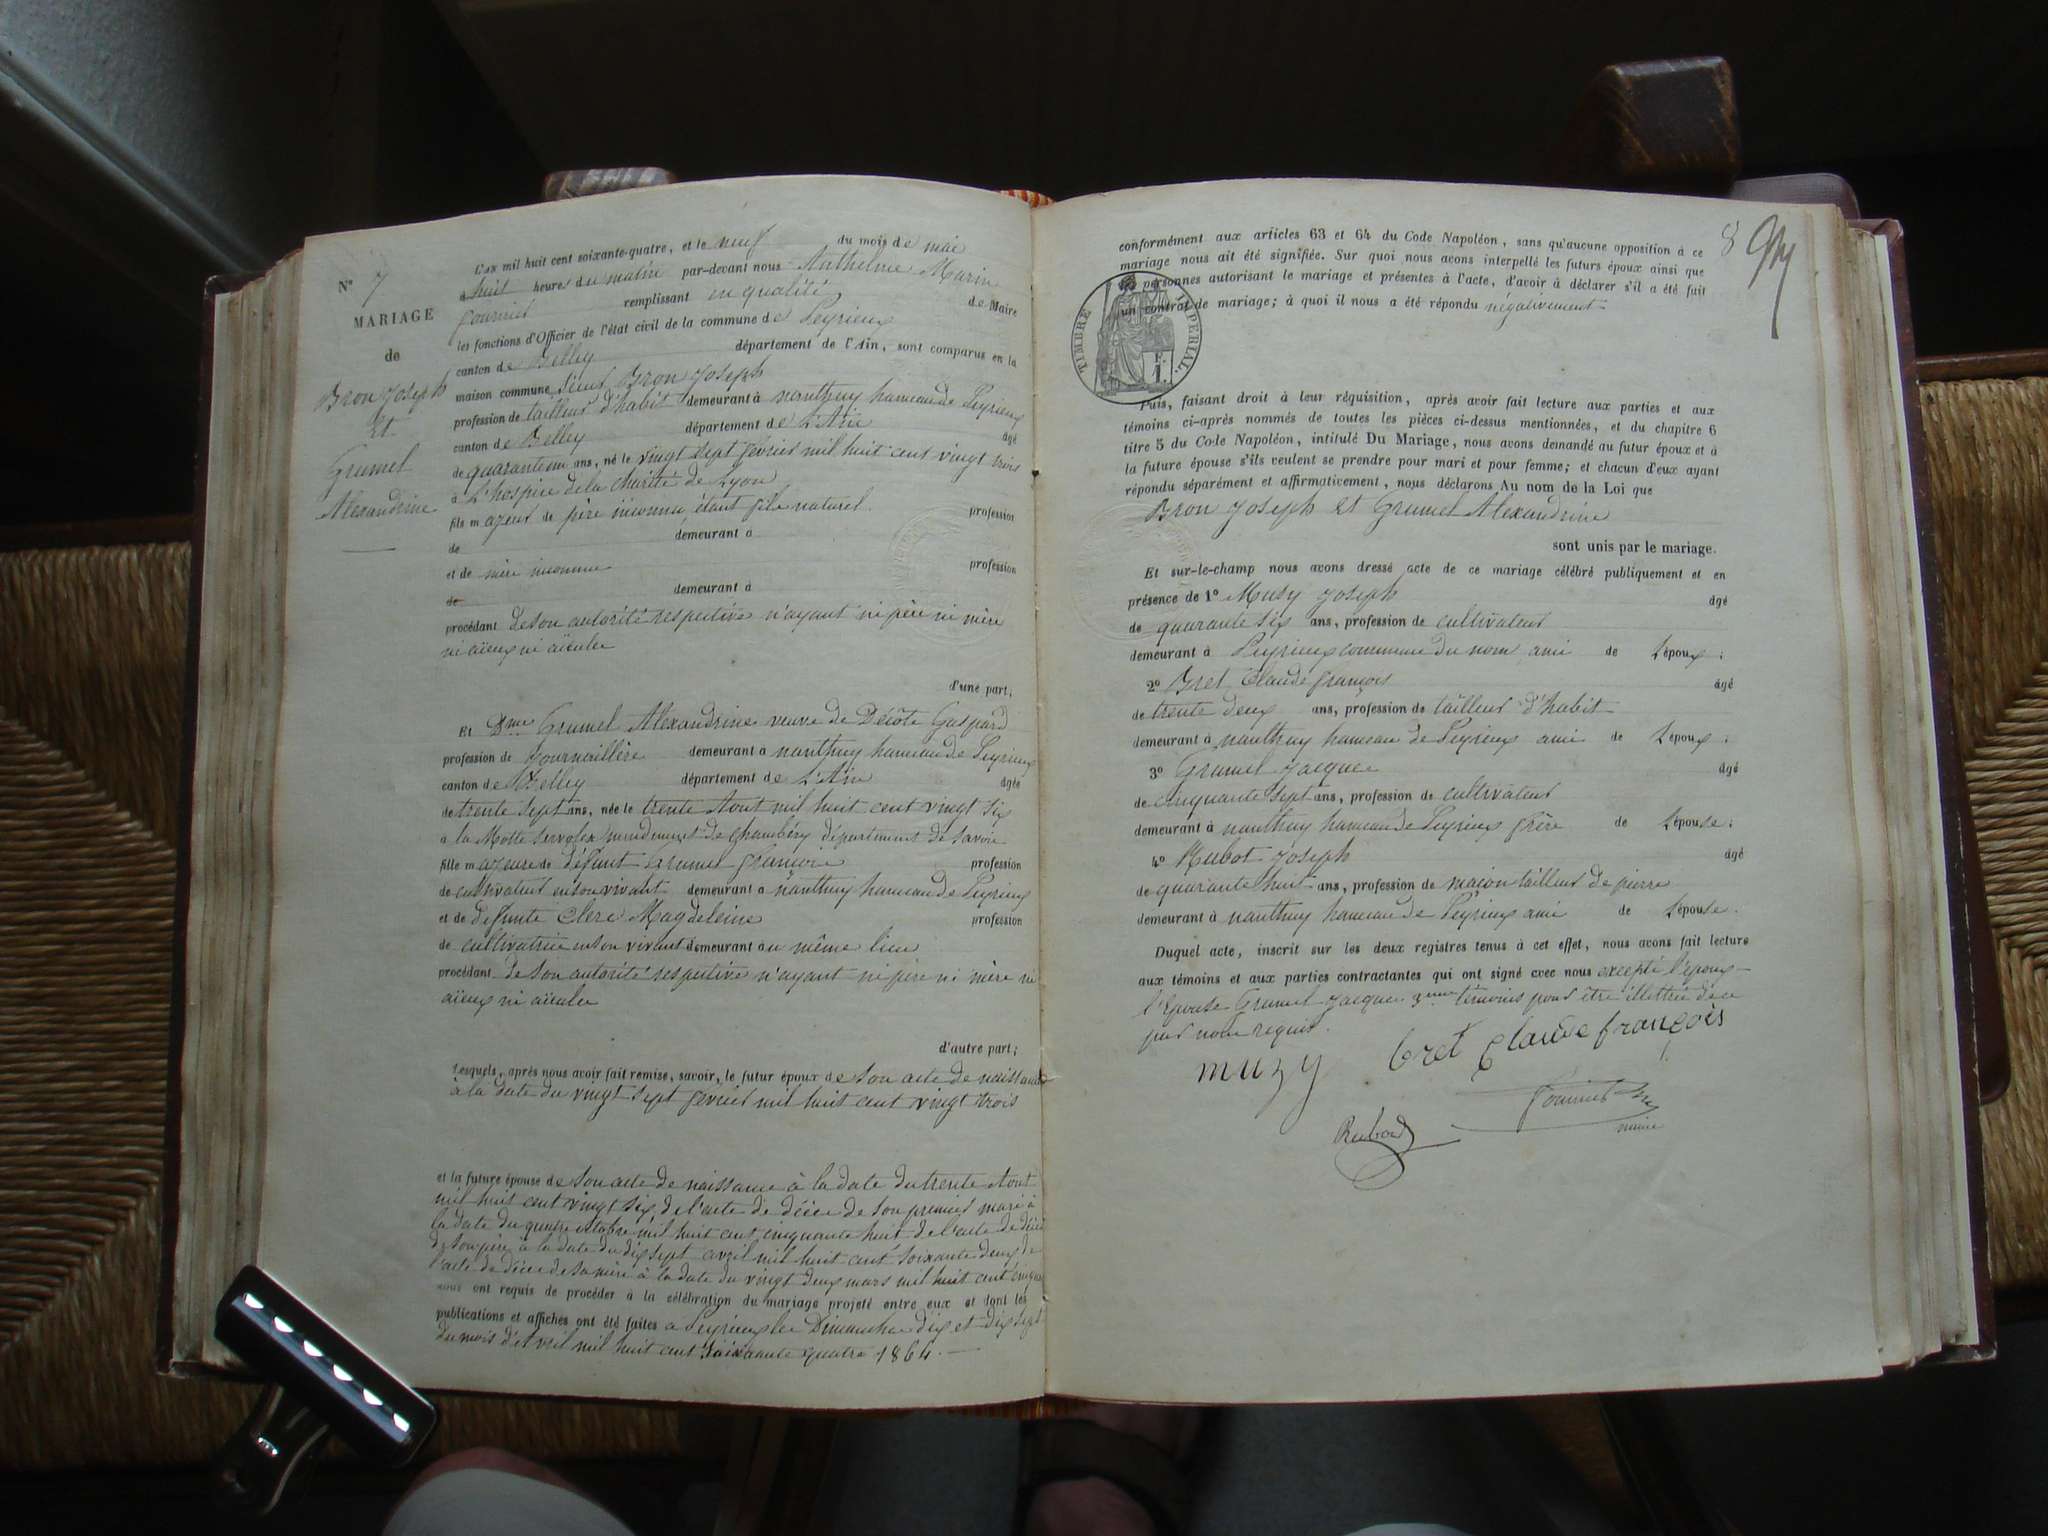 N° 7
MARIAGE
de
Bron Joseph
Et
Grumel
Alexandrine
L'an mil huit cent soixante-quatre, et le neuf du mois de mai
à huit heures du matin par-devant nous Anthelme Marin
fournier remplissant en qualité de Maire
les fonctions d'Officier de l'état civil de la commune de Peyrieux
canton de Belley département de l'Ain, sont comparus en la
maison commune Sieur Bron Joseph
profession de tailleur d'habit demeurant à nanthuy hameau de Peyrieux
canton de Belley département de L'Ain âgé
de quarante un ans, né le vingt sept février mil huit cent vingt trois
à L'hospice de la charité de Lyon
fils majeur de père inconnu, étant fils naturel. profession
de demeurant à
et de mère inconnue profession
de demeurant à
procédant de son autorité respective n'ayant ni père ni mère
ni aïeux ni aïeules
d'une part;
Et Dme Grumel Alexandrine veuve de Décôte Gaspard
profession de journaillère demeurant à nanthuy hameau de Peyrieux
canton de Belley département de L'Ain âgée
de trente sept ans, née le trente Aout mil huit cent vingt six
à la Motte Servolex mendement de chambéry département de Savoie
fille majeure de défunt Grumel françois profession
de cultivateur en son vivant demeurant à nanthuy hameau de Peyrieux
et de defunte Clerc Magdeleine profession
de cultivatrice en son vivant demeurant au même lieu
procédant de son autorité respective n'ayant ni père ni mère ni
aïeux ni aïeules
d'autre part;
Lesquels, après nous avoir fait remise, savoir, le futur époux de son acte de naissance
à la date du vingt sept février mil huit cent vingt trois
et la future épouse de son acte de naissance à la date du trente Aout
mil huit cent vingt six, de l'acte de décès de son premier mari à
la date du quatre octobre mil huit cent cinquante huit de l'acte de décès
de son père à la date du dix sept avril mil huit cent soixante deux de
l'acte de décès de sa mère à la date du vingt deux mars mil huit cent
nous ont requis de procéder à la célébration du mariage projeté entre eux et dont les
publications et affiches ont été faites à Peyrieux les Dimanches dix et dix sept
du mois d'Avril mil huit cent soixante quatre 1864.
8
conformément aux articles 63 et 64 du Code Napoléon, sans qu'aucune opposition à ce
mariage nous ait été signifiée. Sur quoi nous avons interpellé les futurs époux ainsi que
les personnes autorisant le mariage et présentes à l'acte, d'avoir à déclarer s'il a été fait
un contrat de mariage; à quoi il nous a été répondu négativement
TIMBRE IMPERIAL.
1 F.
Puis, faisant droit à leur réquisition, après avoir fait lecture aux parties et aux
témoins ci-après nommés de toutes les pièces ci-dessus mentionnées, et du chapitre 6
titre 5 du Code Napoléon, intitulé Du Mariage, nous avons demandé au futur époux et à
la future épouse s'ils veulent se prendre pour mari et pour femme; et chacun d'eux ayant
répondu séparément et affirmativement, nous déclarons Au nom de la Loi que
Bron Joseph Et Grumel Alexandrine
sont unis par le mariage.
Et sur-le-champ nous avons dressé acte de ce mariage célébré publiquement et en
présence de 1° Musy Joseph âgé
de quarante six ans, profession de cultivateur
demeurant à Peyrieux commune du nom ami de L'époux;
2° Bret Claude françois âgé
de trente deux ans, profession de tailleur d'habit
demeurant à nanthuy hameau de Peyrieux ami de L'époux;
3° Grumel Jacques âgé
de cinquante sept ans, profession de cultivateur
demeurant à nanthuy hameau de Peyrieux frère de L'épouse;
4° Rubot Joseph âgé
de quarante huit ans, profession de maçon tailleur de pierre
demeurant à nanthuy hameau de Peyrieux ami de L'épouse.
Duquel acte, inscrit sur les deux registres tenus à cet effet, nous avons fait lecture
aux témoins et aux parties contractantes qui ont signé avec nous excepté l'époux
l'épouse Grumel Jacques 3me témoins pour être illettrés de ce
par nous requis.
muzy bret Claude françois
fournier
maire
Rubod